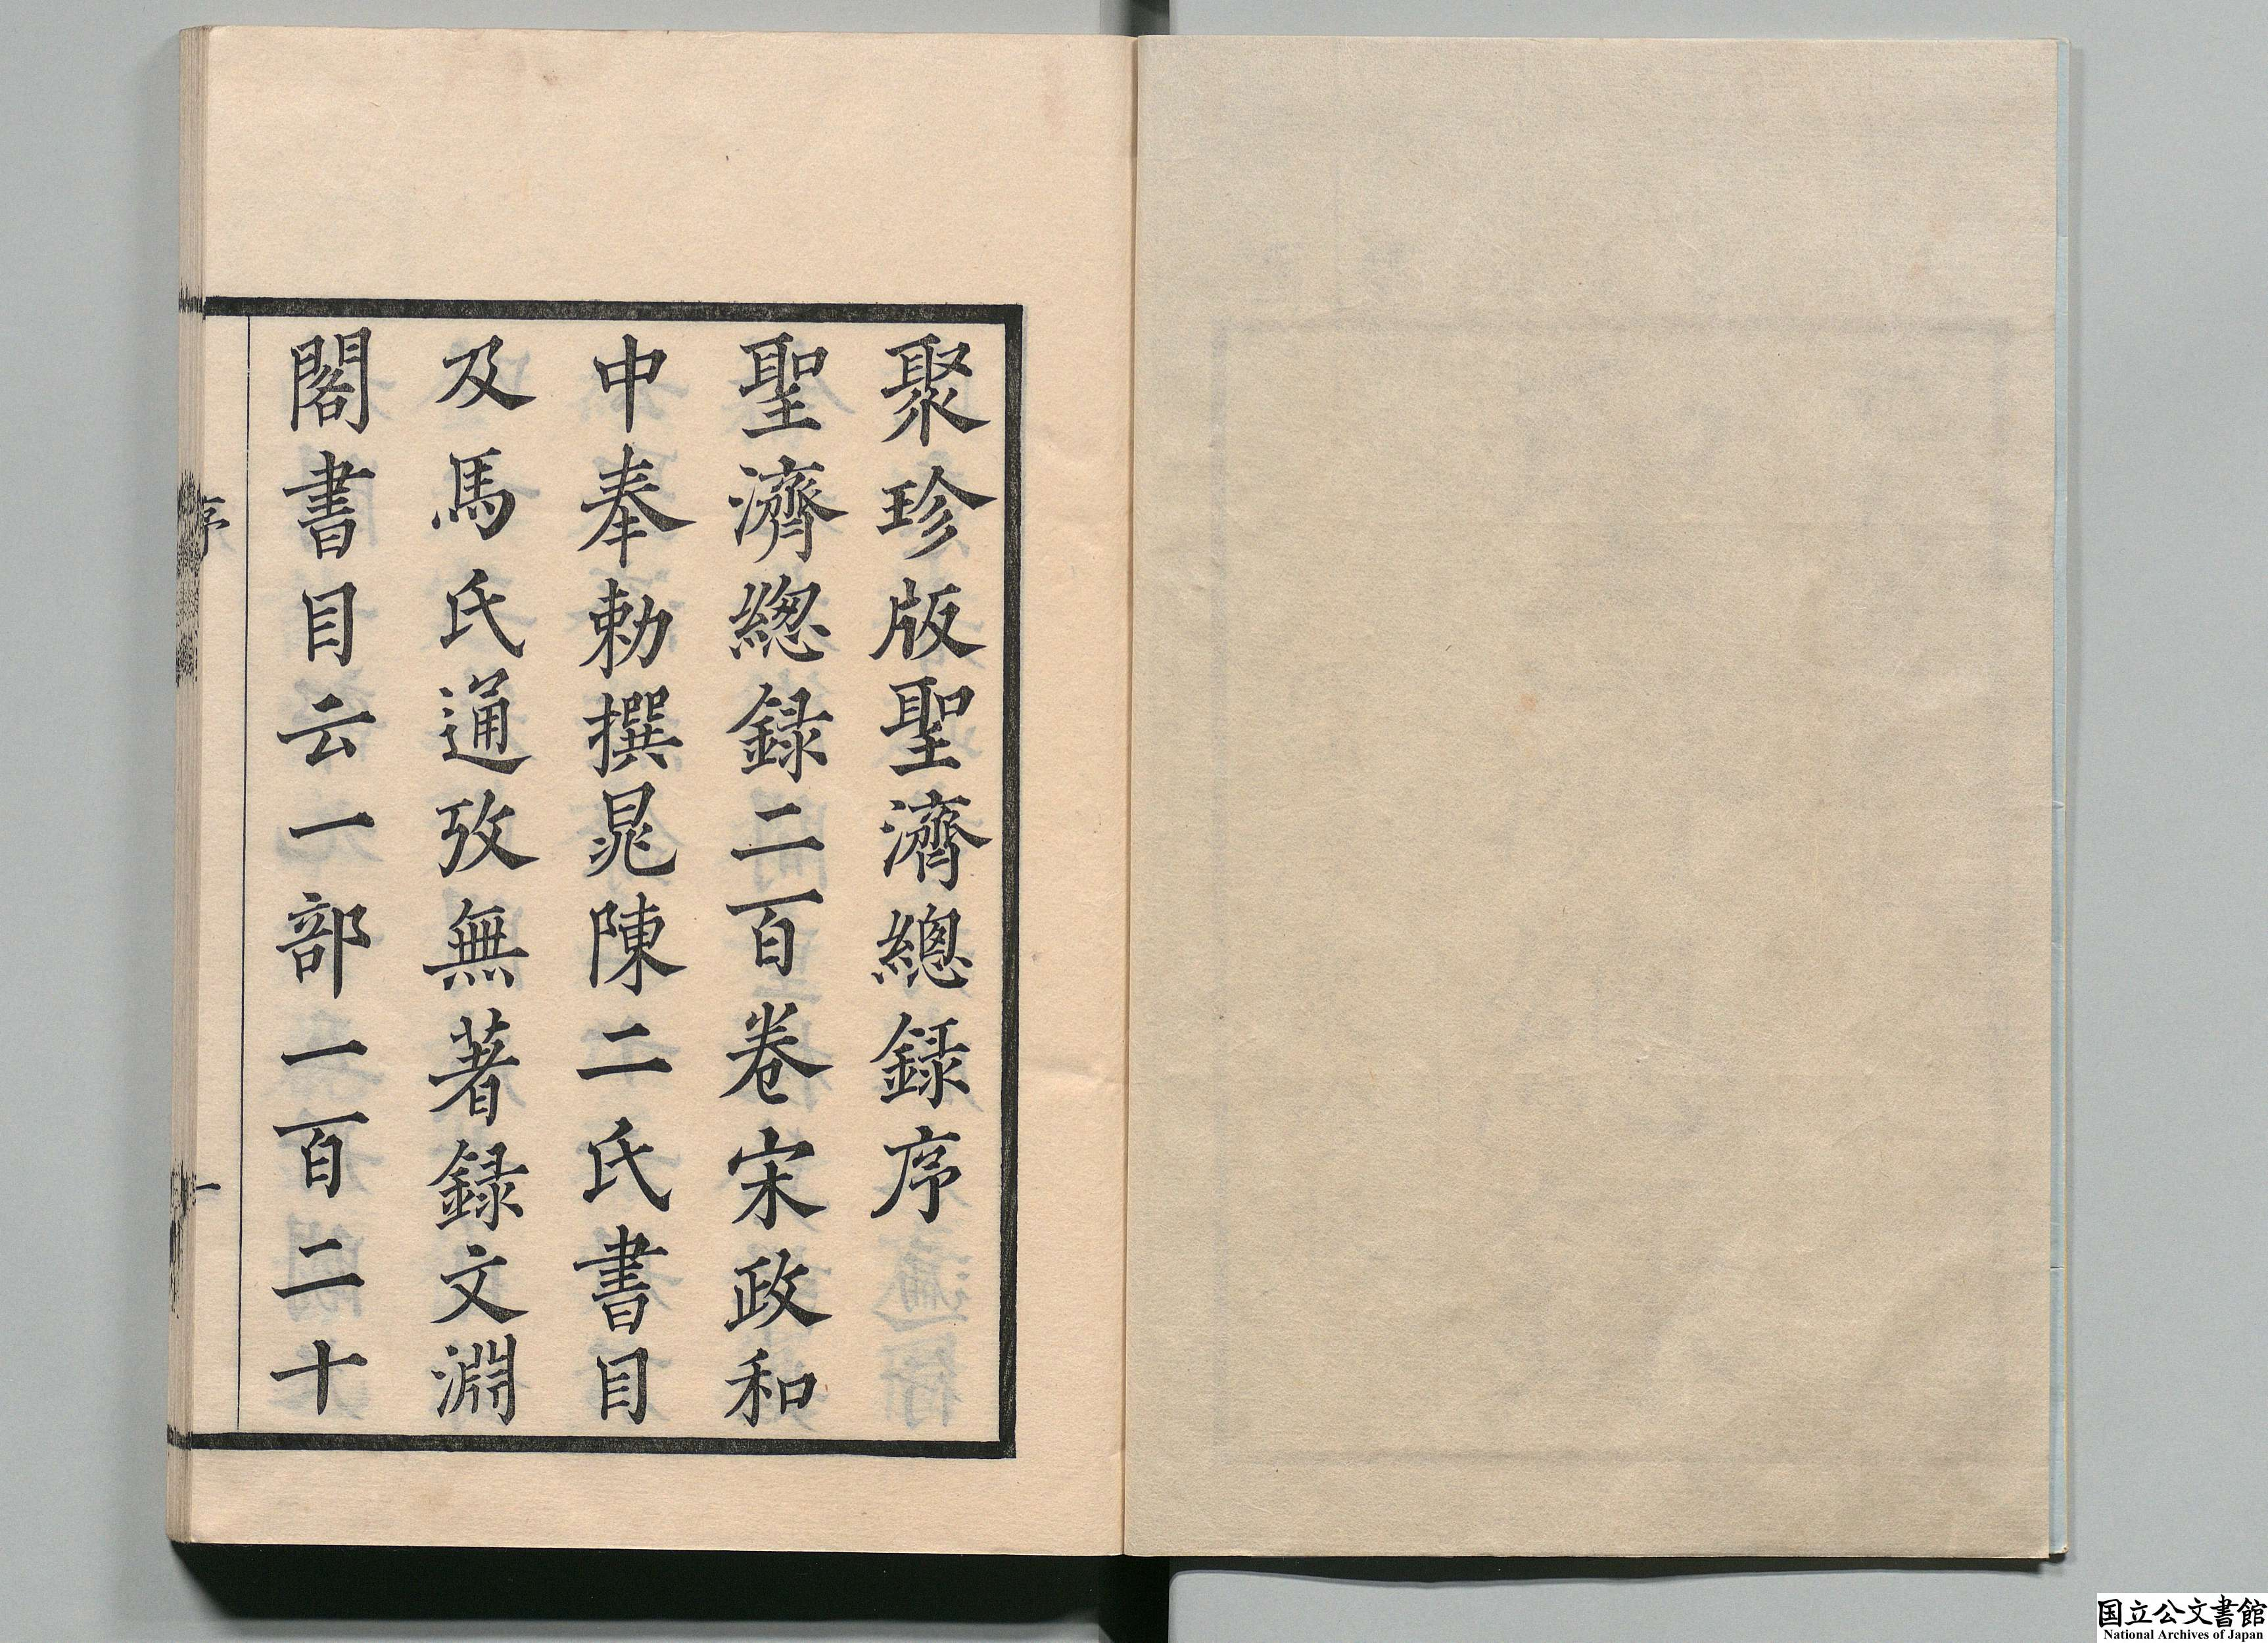 聚珍版聖濟總録序
聖濟緫録二百卷宋政和
中奉勅撰晁陳二氏書目
及馬氏通攷無著録文淵
閣書目云一部一百二十
序
一
国立公文書館
National Archives of Japan